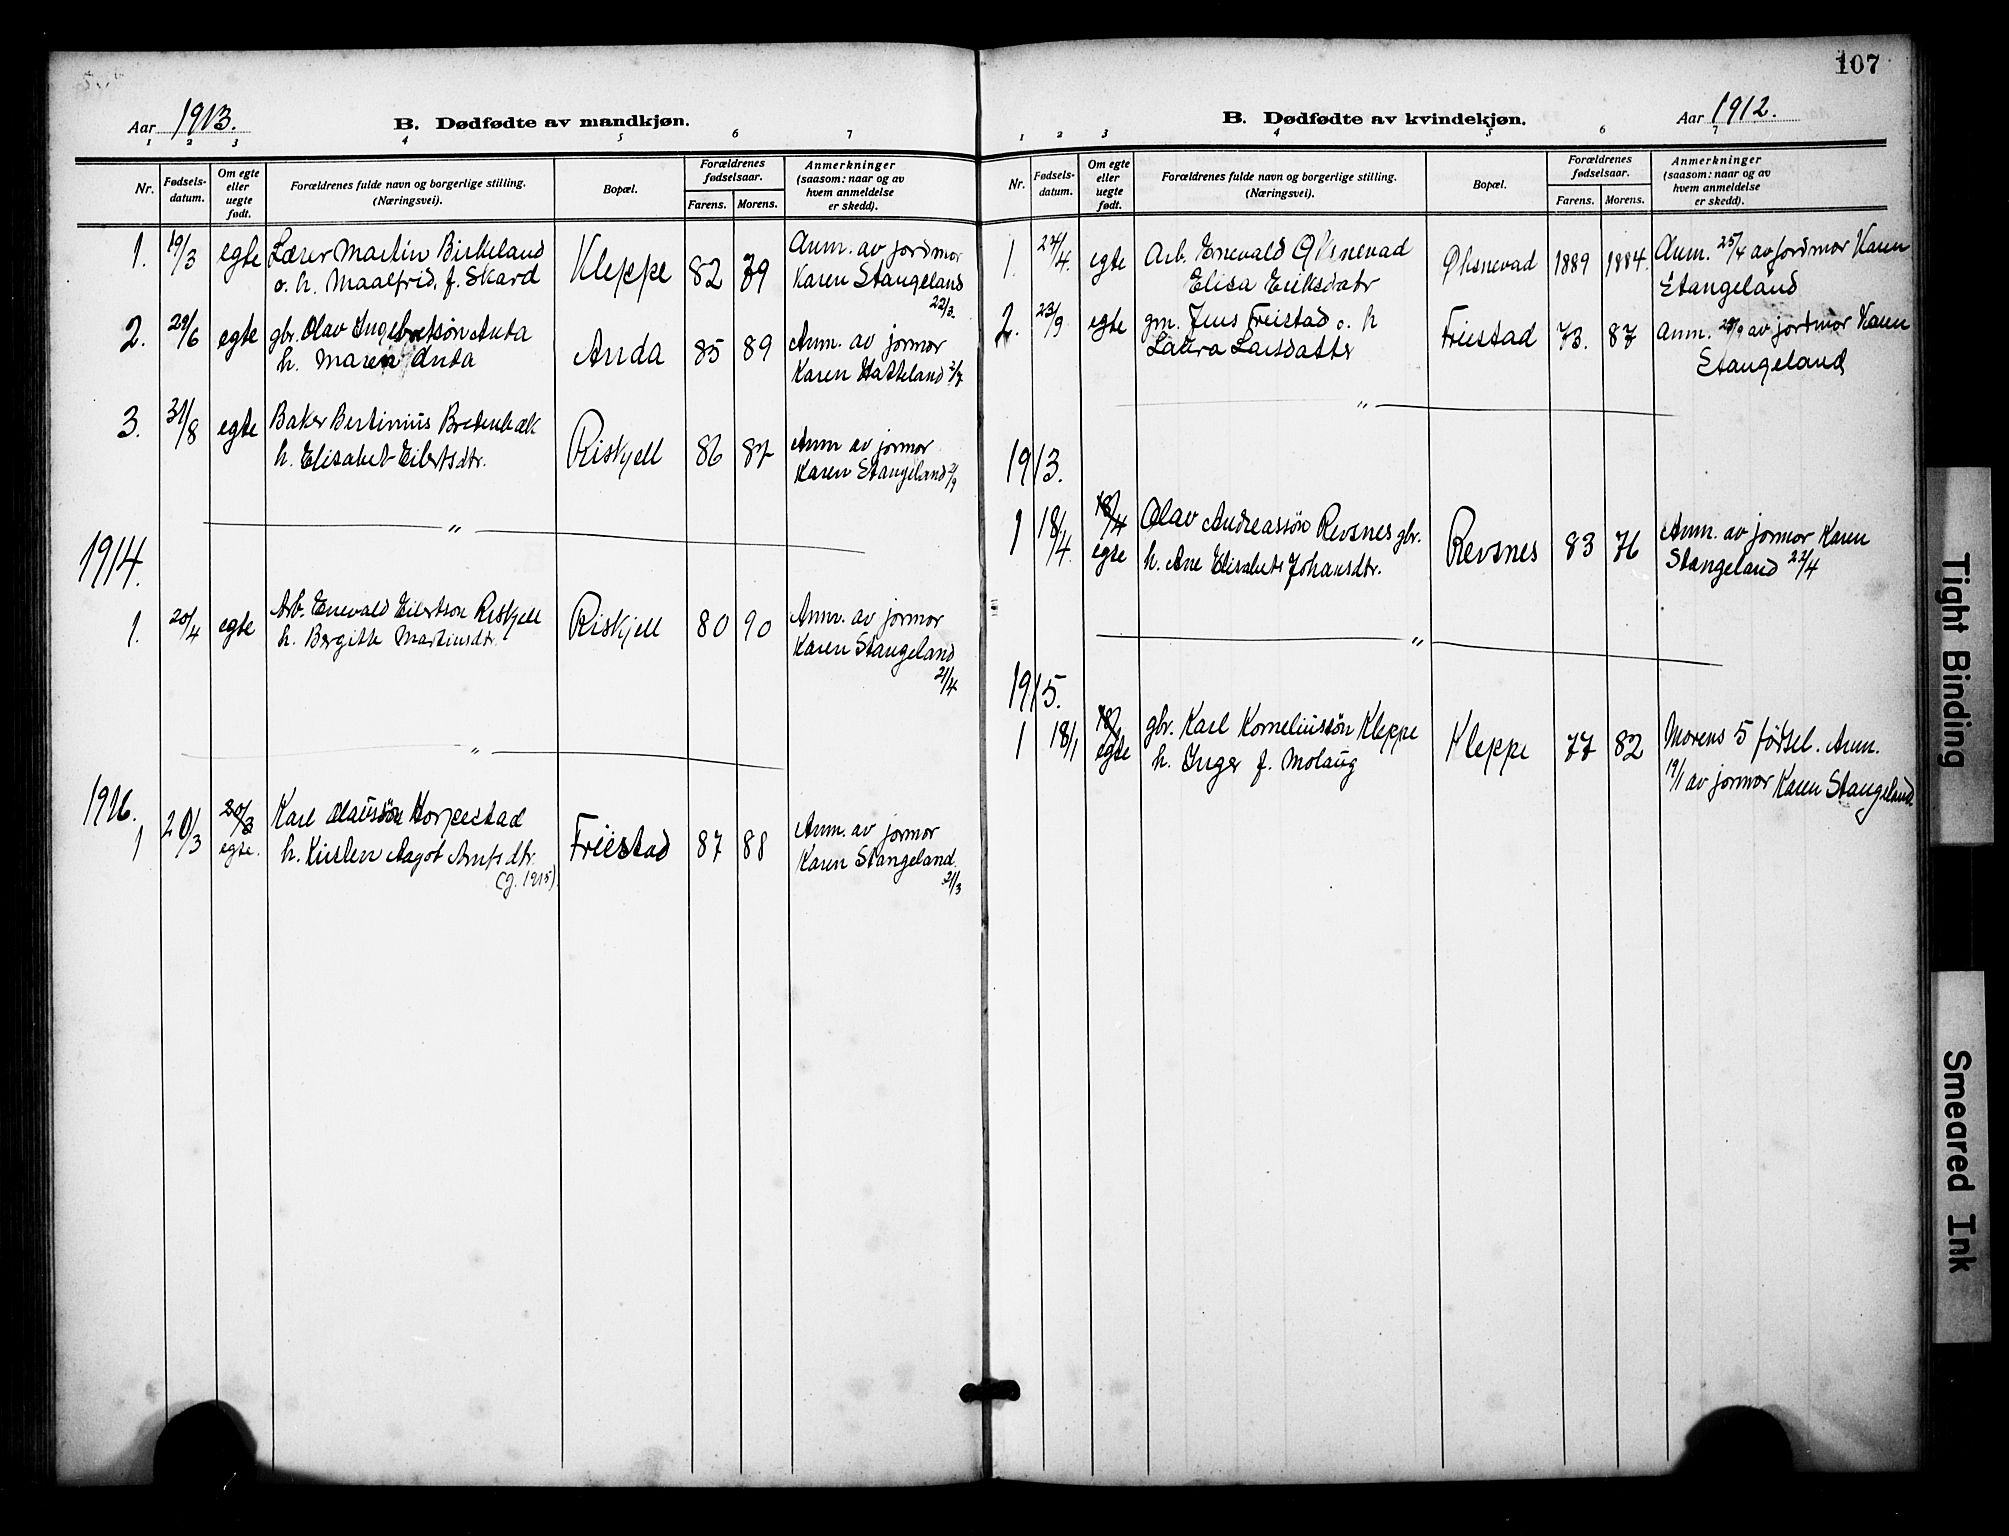 107
Aar 1913.
B. Dødfødte av mandkjøn.
1 2 3 4 5 6 7
Nr.
Fødsels-
datum.
Om egte
eller
uegte
født.
Forældrenes fulde navn og borgerlige stilling.
(Næringsvei).
Bopæl.
Forældrenes
fødselsaar.
Farens. Morens.
Anmerkninger
(saasom: naar og av
hvem anmeldelse
er skedd).
1. 19/3 egte Lærer Martin Birkeland Kleppe 82 79 Anm. av jordmor
o. h. Maalfrid, f. Skard Karen Stangeland
22/3.
2. 29/6 egte gbr. Olav Ingebretsøn Anda Anda 85 89 Anm. av jormor
h. Maren Anda Karen Hatteland 2/7
3. 31/8 egte Baker Bertinius Bredenbæk Riskjell 86 87 Anm av jormor
h. Elisabet Eilertsdtr. Karen Stangeland 2/9
"
1914.
1. 20/4 egte Arb. Enevald Eilertson Riskjell Riskjell 80 90 Anm. av jormor
h. Bergitte Martinsdtr. Karen Stangeland
21/4
"
1916.
1 20/3 20/3 Karl Olausøn Horpestad Friestad 87 88 Anm. av jormor
egte. h. Kirsten Aagot Arntsdtr. Karen Stangeland.
(g. 1915). 21/3
B. Dødfødte av kvindekjøn.
Aar 1912.
1 2 3 4 5 6 7
Nr.
Fødsels-
datum.
Om egte
eller
uegte
født.
Forældrenes fulde navn og borgerlige stilling.
(Næringsvei).
Bopæl.
Forældrenes
fødselsaar.
Farens. Morens.
Anmerkninger
(saasom: naar og av
hvem anmeldelse
er skedd).
1. 24/4. egte Arb. Enevald Øksnevad Øksnevad 1889 1884. Anm. 25/4 av jordmor Karen
Elisa Eriksdatr Stangeland
2. 23/9 egte gm. Jens Friestad o. h Friestad 73. 87 Anm. av jordmor Karen
Laura Larsdatter Stangeland
"
1913.
1 18/4. 18/4 Olav Andreassøn Revsnes gbr. Revsnes 83 76 Anm. av jormor Karen
egte h. Ane Elisabets Johansdtr. Stangeland 22/4
"
1915.
1 18/1 18/1 gbr. Karl Korneliussøn Kleppe Kleppe 77 82 Morens 5 fødsel. Anm.
egte h. Inger f. Molaug 19/1 av jormor Karen Stangeland.
Tight Binding
Smeared Ink